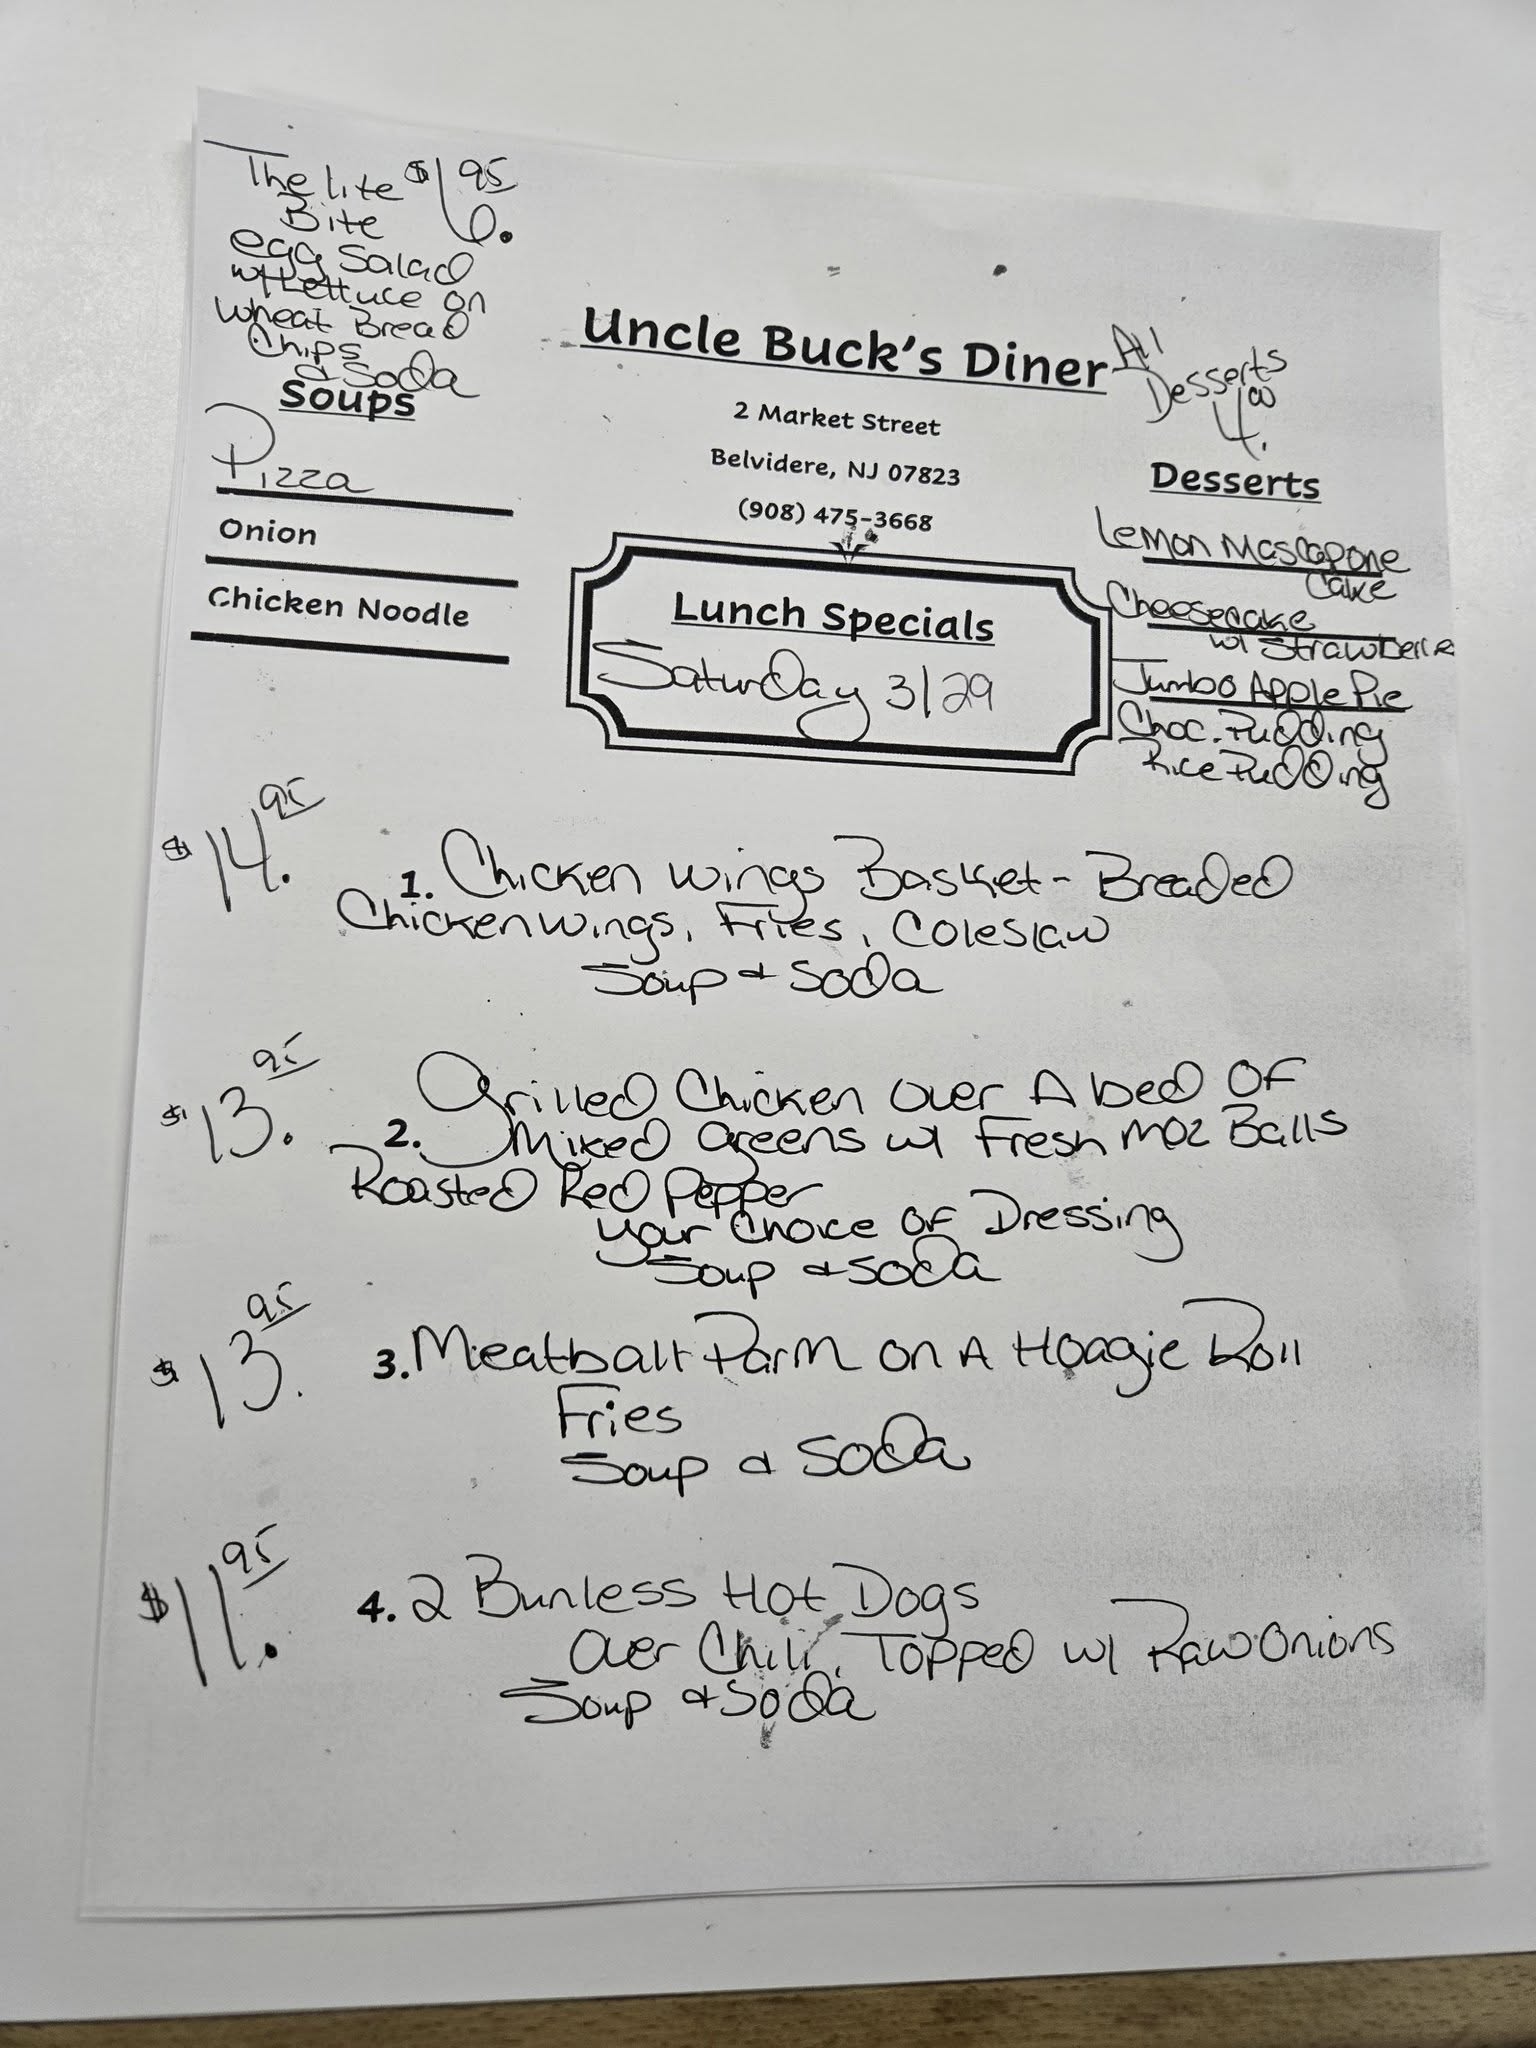 The Lite $6.95
Bite
egg Salad
w/ Lettuce on
Wheat Bread
Chips
& Soda
Soups
Pizza
Onion
Chicken Noodle
Uncle Buck's Diner
2 Market Street
Belvidere, NJ 07823
(908) 475-3668
Lunch Specials
Saturday 3/29
All
Desserts
4.00
Desserts
Lemon Mascapone
Cake
Cheesecake
w/ Strawberrie
Jumbo Apple Pie
Choc. Pudding
Rice Pudding
$14.95
1. Chicken Wings Basket - Breaded
Chicken Wings, Fries, Coleslaw
Soup & Soda
$13.95
2. Grilled Chicken Over A bed Of
Mixed Greens w/ Fresh Moz Balls
Roasted Red Pepper
your Choice Of Dressing
Soup & Soda
$13.95
3. Meatball Parm on A Hoagie Roll
Fries
Soup & Soda
$11.95
4. 2 Bunless Hot Dogs
Over Chili, Topped w/ Raw Onions
Soup & Soda